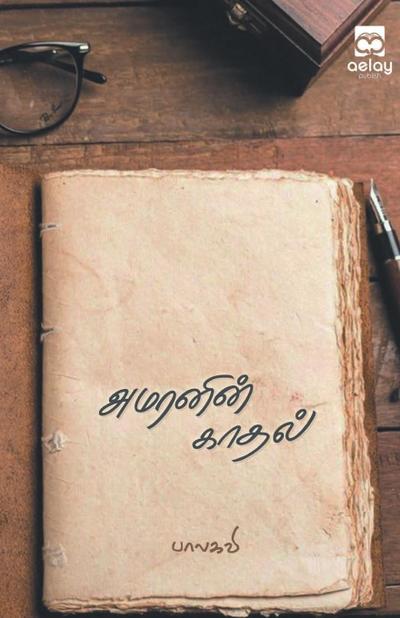 aelay
publish
அமரனின்
காதல்
பாலகவி